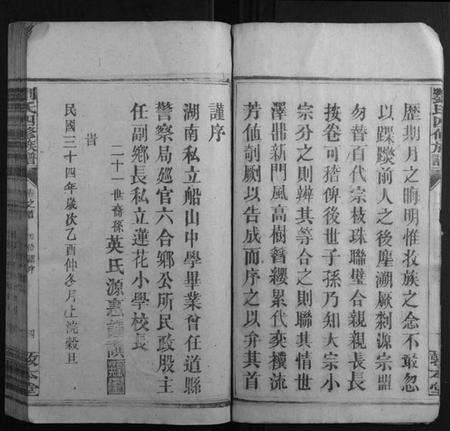 歷期月之晦明惟收族之念不敢忽
以躞蹀前人之後塵溯厥刱源宗盟
勿替百代宗枝珠聯璧合親親長長
按卷可稽俾後世子孫乃知大宗小
宗分之則辨其等合之則聯其情世
澤鼎新門風高樹簪纓累代奕襈流
芳值剞劂以告成而序之以弁其首
謹序
湖南私立船山中學畢業曾任道縣
警察局廵官六合鄉公所民政股主
任副鄉長私立蓮花小學校長
二十一世嗣孫英氏源惠謹撰
民國三十四年歲次乙酉仲冬月上浣穀旦
劉氏四修族譜
劉氏四修族譜
敦本堂